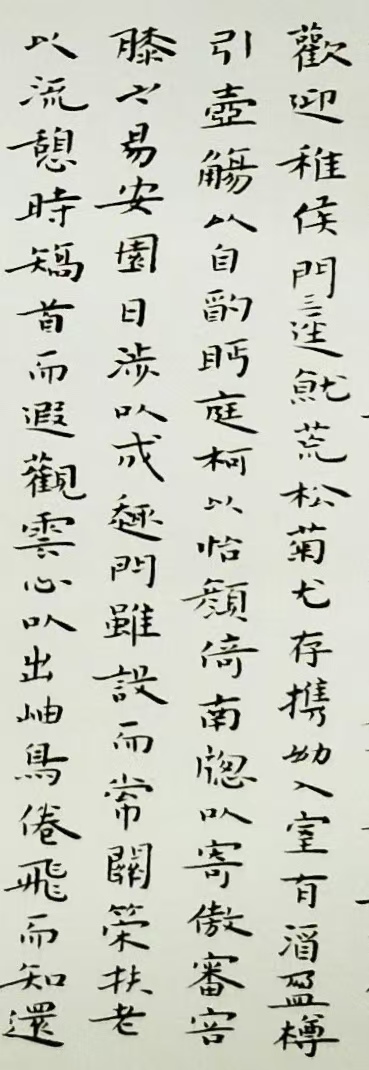 歡迎稚侯門三逕就荒松菊尤存携幼入室有酒盈樽
引壺觴以自酌眄庭柯以怡顏倚南牕以寄傲審容
膝之易安園日涉以成趣門雖設而常關策扶老
以流憩時矯首而遐觀雲心以出岫鳥倦飛而知還